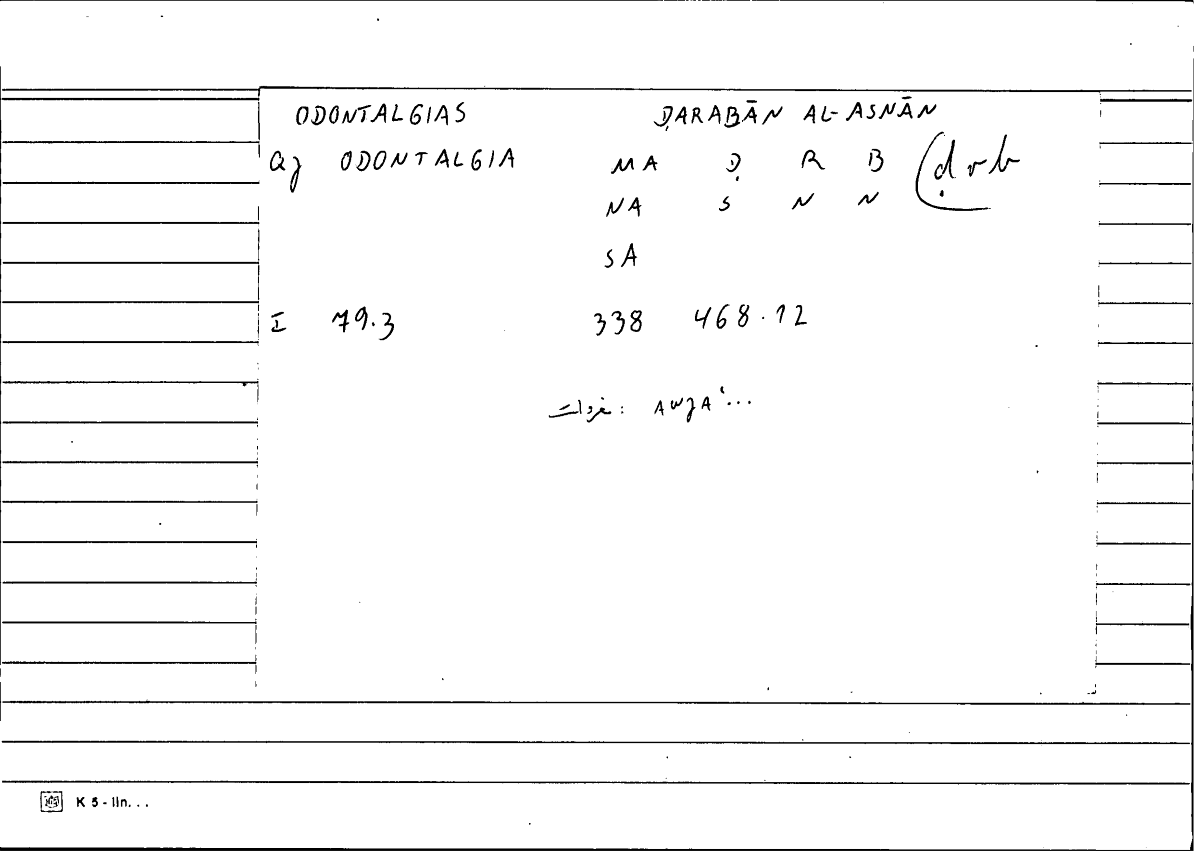 ODONTALGIAS ḌARABĀN AL-ASNĀN
Qj ODONTALGIA MA Ḍ R B (ḍrb
NA S N N
SA
I 79.3 338 468.12
: AWJAʿ...
K 5 - lin...